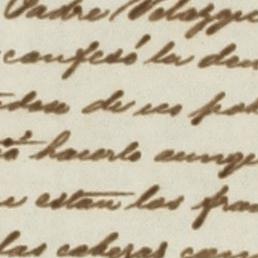 Padre Velazque
confesó la den
dose de no pod
ió hacerlo aunqu
e estan las fra
las cabezas com